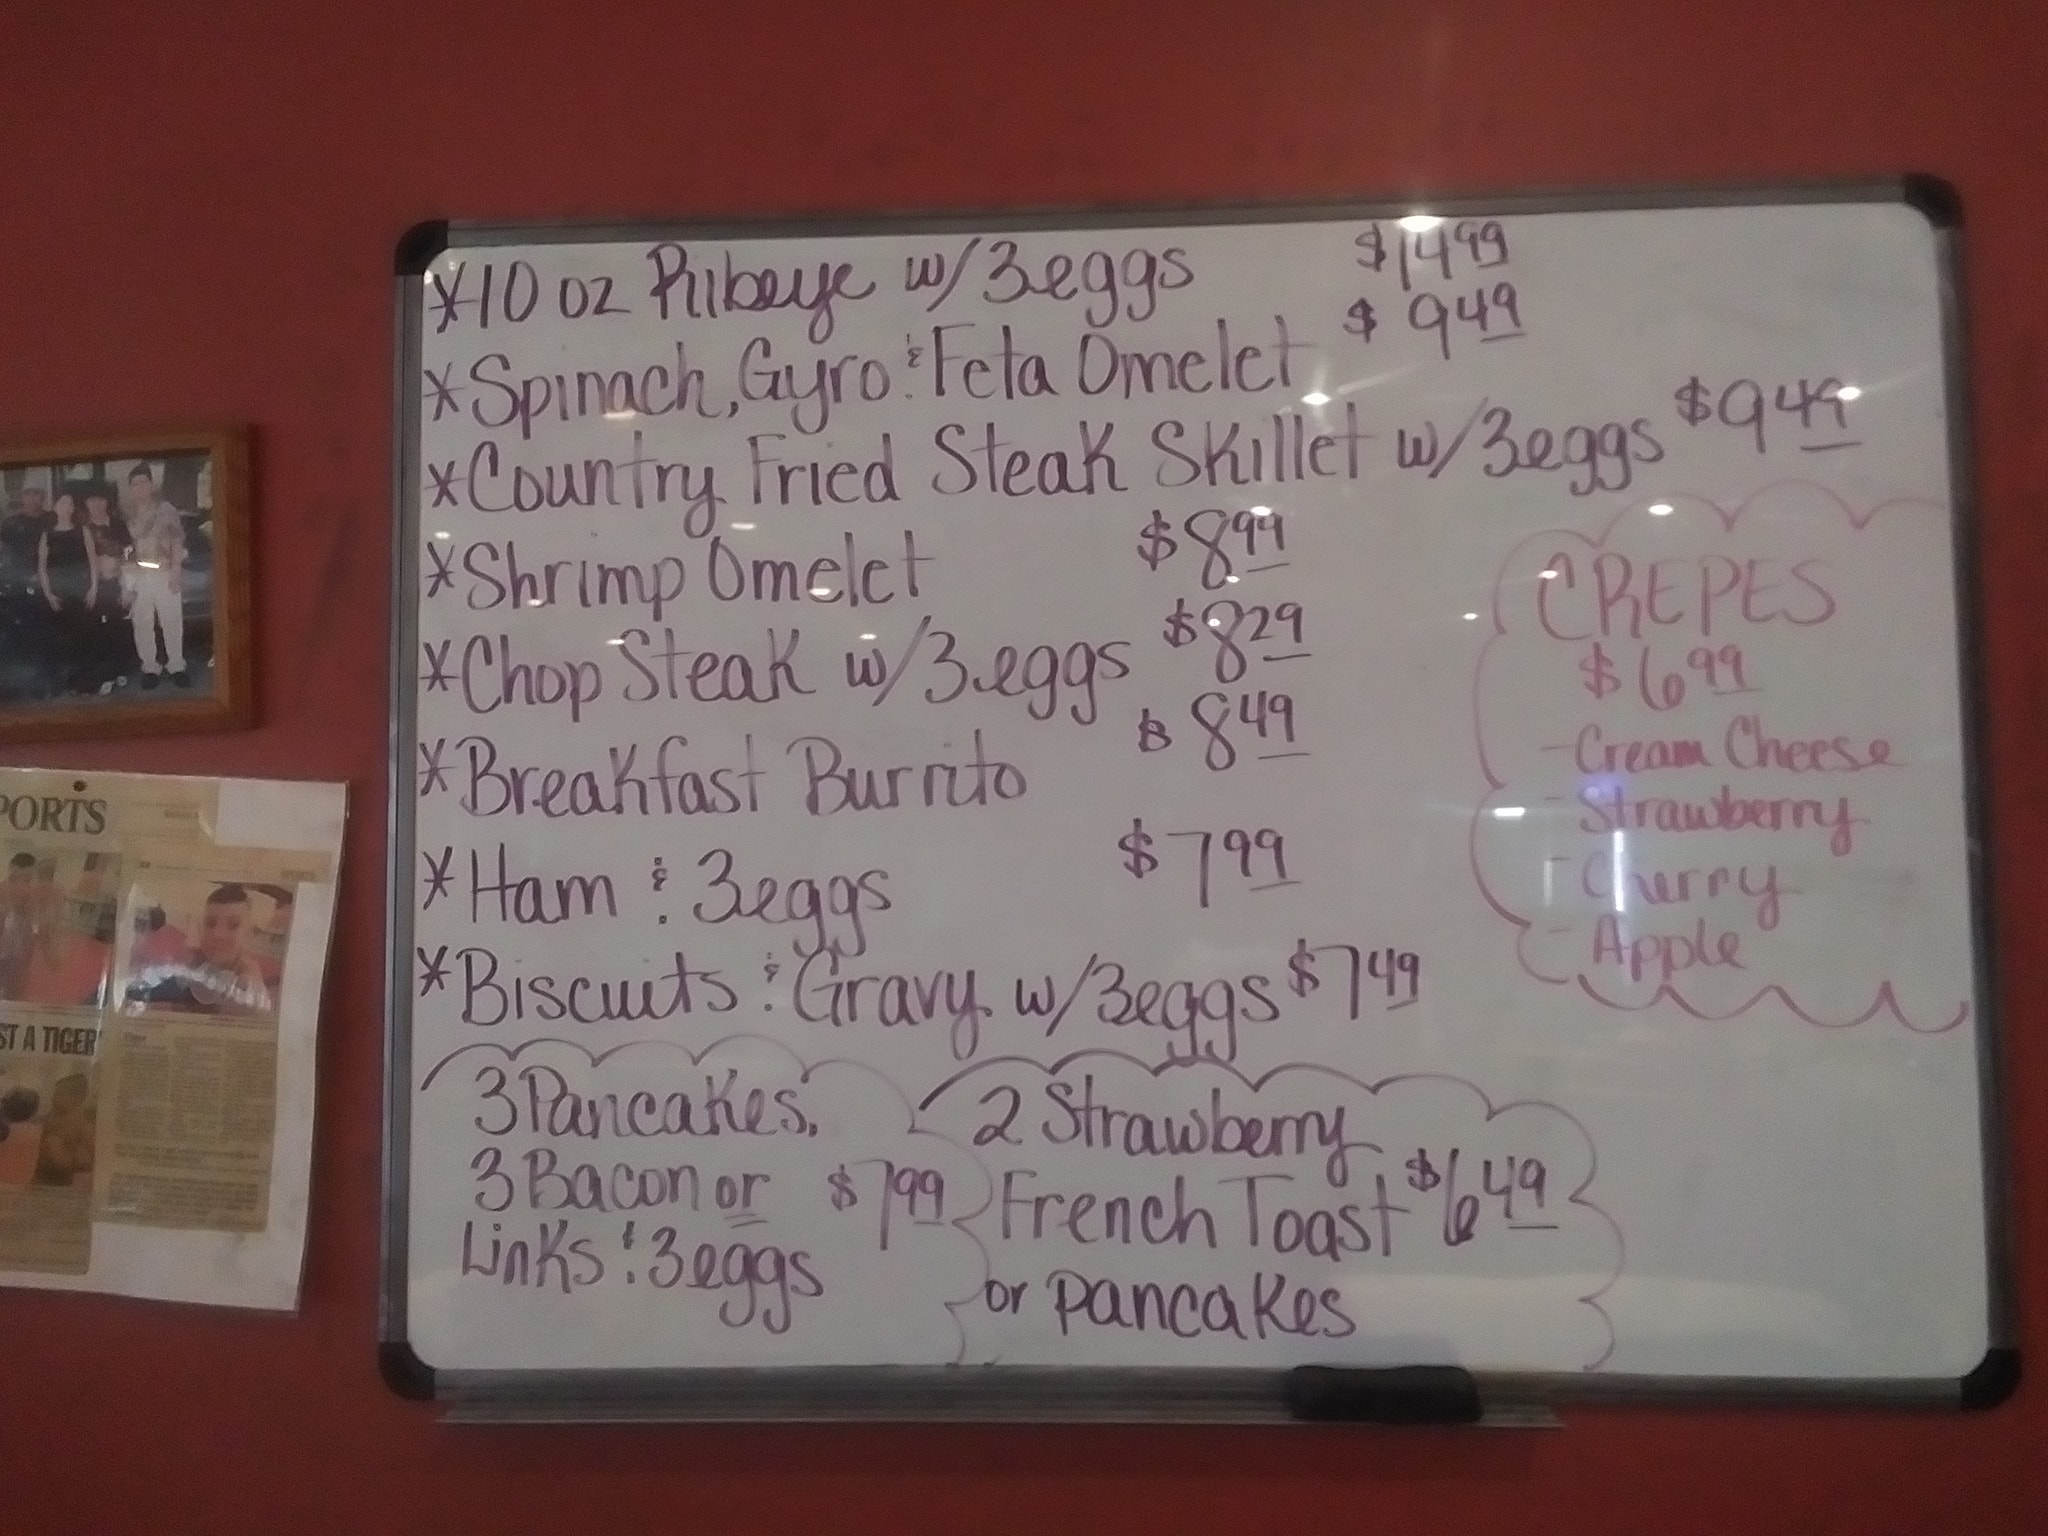 *10 oz Ribeye w/3eggs $14 99
*Spinach, Gyro & Feta Omelet $ 9 49
*Country Fried Steak Skillet w/3eggs $9 49
*Shrimp Omelet $8 99
*Chop Steak w/3eggs $8 29
*Breakfast Burrito $8 49
*Ham & 3eggs $7 99
*Biscuits & Gravy w/3eggs $7 49
CREPES
$6 99
-Cream Cheese
-Strawberry
-Cherry
-Apple
3 Pancakes,
3 Bacon or $7 99
Links & 3eggs
2 Strawberry
French Toast $6 49
or pancakes
PORTS
ST A TIGER